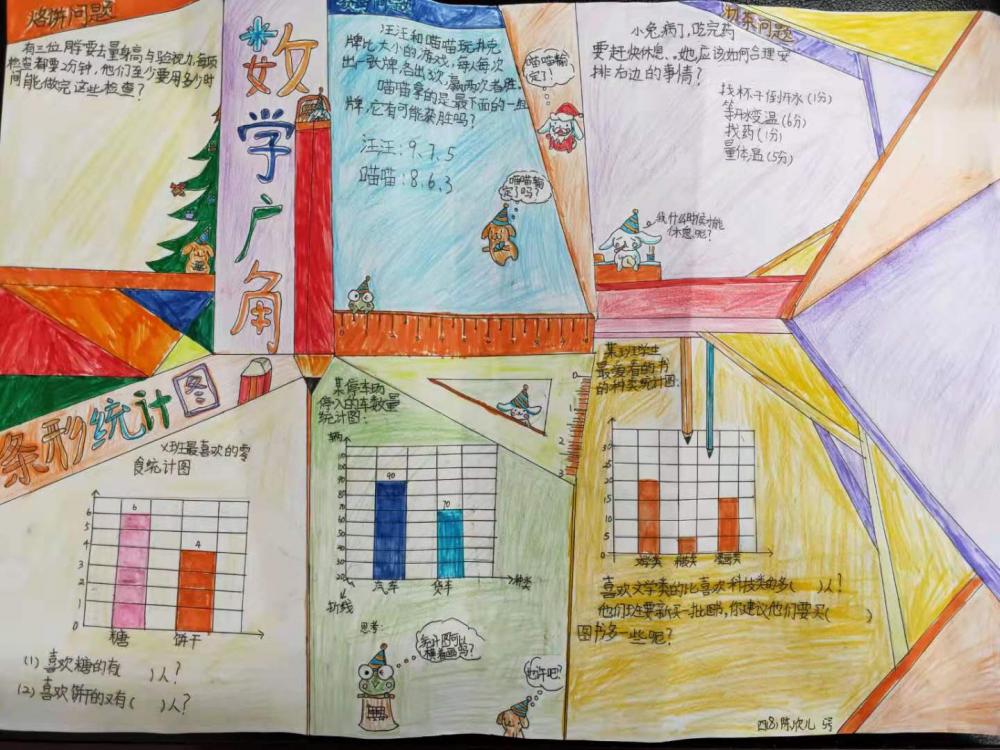 烙饼问题
有三位同学要去量身高与验视力,每项
检查都要2分钟,他们至少要用多少时
间能做完这些检查?
数学广角
汪汪和喵喵玩扑克
牌比大小的游戏,每人每次
出一张牌,各出3次,赢两次者胜.
喵喵拿的是最下面的一组
牌,它有可能获胜吗?
汪汪:9.7.5
喵喵:8.6.3
喵喵输
定了!
喵喵输
定了吗?
沏茶问题
小兔病了,吃完药
要赶快休息.她应该如何合理安
排右边的事情?
找杯子倒开水(1分)
等开水变温(6分)
找药(1分)
量体温(5分)
我什么时候才能
休息呢?
条形统计图
X班最喜欢的零
食统计图
6
5
4
3
2
1
0
6
4
糖
饼干
(1)喜欢糖的有( )人?
(2)喜欢饼干的又有( )人?
某停车场
停入的车数量
统计图:
辆
90
70
汽车
货车
种类
折线
思考:
统计图可以
横着画吗?
也许吧?
0
1
2
3
某班学生
最爱看的书
的种类统计图:
喜欢文学类的比喜欢科技类的多( )人?
他们班要新买一批图书,你建议他们要买( )
图书多一些呢?
5号